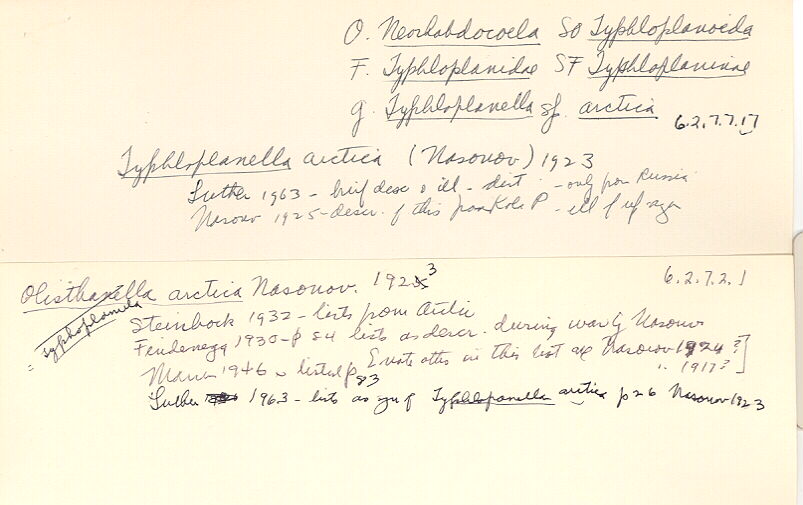 O. Neorhabdocoela SO Typhloplanoida
F. Typhloplanidae SF Typhloplaninae
g. Typhloplanella sp. arctica
6.2.7.7.17
Typhloplanella arctica (Nasonov) 1923
Luther 1963 - brief desc & ill - dist - only from Russia
Nasonov 1925 - descr. of this from Kola P - ill of
Olisthanella arctica Nasonov. 1923
6.2.7.2.1
= Typhloplanella
Steinbock 1932 - lists from Arctic
Findenegg 1930 - p 84 lists as descr. during war by Nasonov
Marcus 1946 - listed p 83 E note others in this list are Nasonov 1924?]
" 1917?
Luther 1963 - lists as syn of Typhlopanella arctica p 26 Nasonov 1923